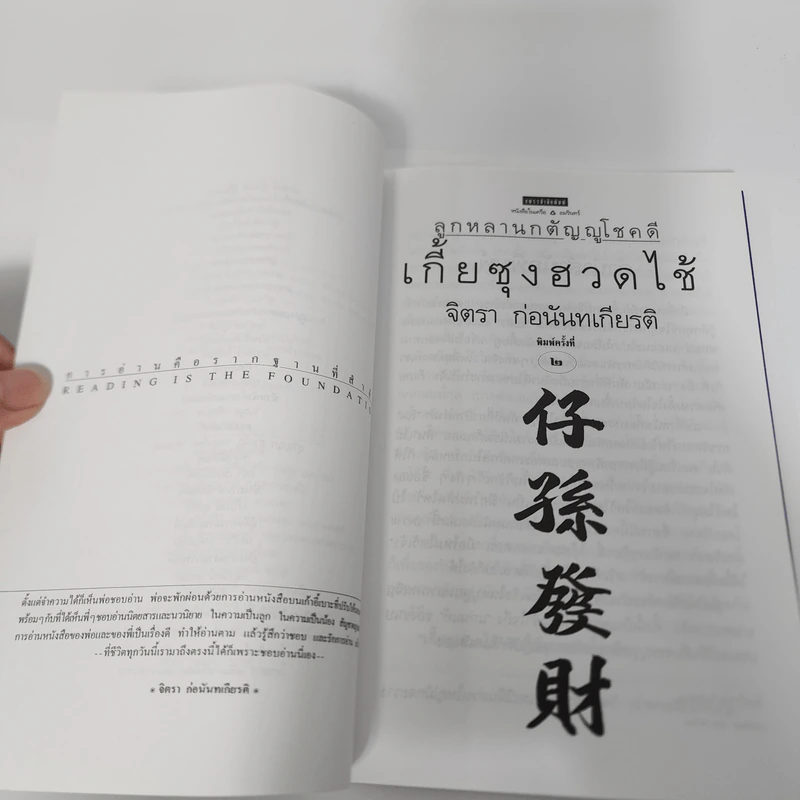 การอ่านคือรากฐานที่สำคั
READING IS THE FOUNDATI
ตั้งแต่จำความได้ก็เห็นพ่อชอบอ่าน พ่อจะพักผ่อนด้วยการอ่านหนังสือบนเก้าอี้เบาะที่ปรับได้
พร้อมๆกับที่ได้เห็นพี่ๆชอบอ่านนิตยสารและนวนิยาย ในความเป็นลูก ในความเป็นน้อง
การอ่านหนังสือของพ่อและของพี่เป็นเรื่องดี ทำให้อ่านตาม แล้วรู้สึกว่าชอบ และรักการอ่าน
--ที่ชีวิตทุกวันนี้เรามาถึงตรงนี้ได้ก็เพราะชอบอ่านนี่เอง--
* จิตรา ก่อนันทเกียรติ *
แพรวสำนักพิมพ์
หนังสือในเครือ อมรินทร์
ลูกหลานกตัญญูโชคดี
เกี้ยซุงฮวดไช้
จิตรา ก่อนันทเกียรติ
พิมพ์ครั้งที่
๒
仔
孫
發
財